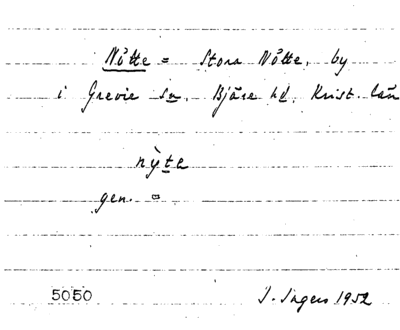 Nötte = Stora Nötte, by
i Grevie sn. Bjäre hd. Krist. län
nỳte
gen. =
5050 I. Ingers 1952